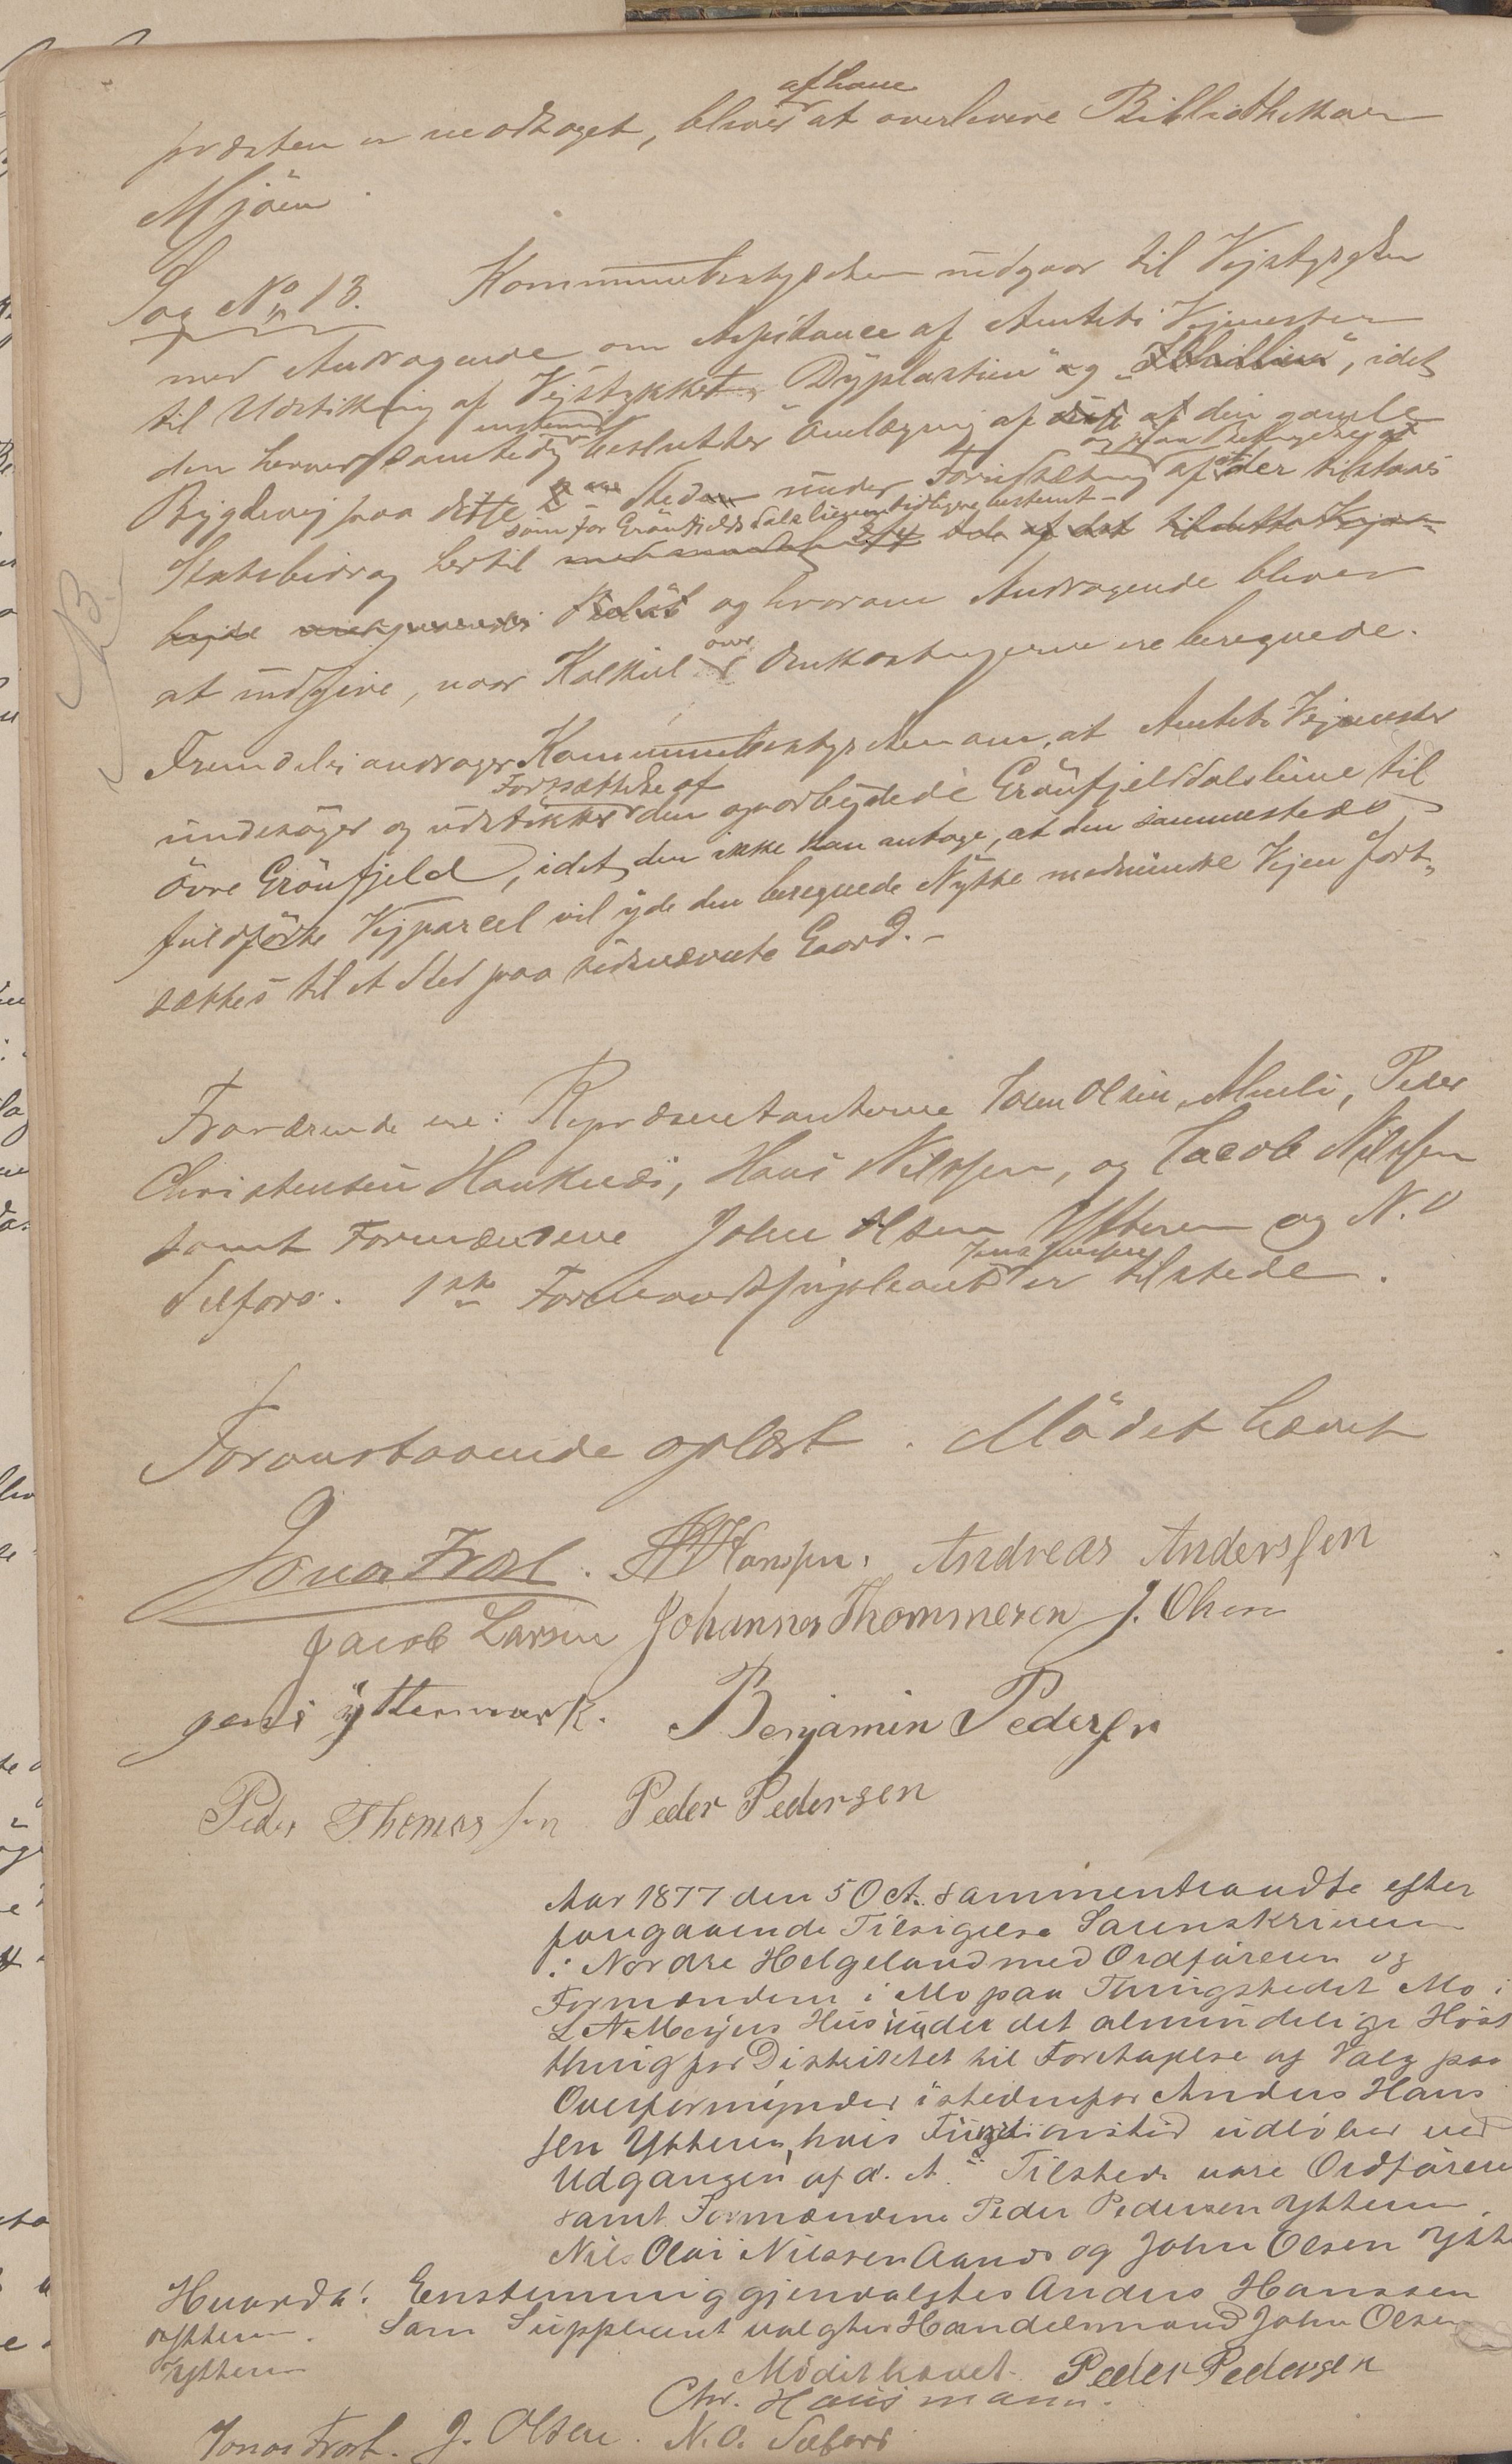 præsten er modtaget, bliver af ham at overlevere Bibliothekaren
Mjöen.
Sag No 13. Kommunebestyrelsen indgaar til Vejstyrelsen
med Andragende om Assistance af Amtets Vejmester
til Udstikning af Vejstykket "Dyplastien" og, idet
den herved samtidig enstemmig beslutter Omlægning af den gamle
Bygdevej paa dette Sted under Forudsætning af og paa Betingelse af at der tilstaaes
Statsbidrag hertil som for Grönfjelddalslinien tidligere bestemt
og hvorom Andragende bliver
at indgive, naar Kalkul over Omkostningerne ere beregnede.
Fremdeles andrager Kommunebestyrelsen om, at Amtets Vejmester
undersöger og udstikker Fortsættelse af den oparbejdede Grönfjelddalslinie til
övre Grönfjeld, idet den ikke kan antage, at den sammesteds
fuldförte Vejparcel vil yde den beregnede Nytte medmindre Vejen fort-
sættes til et Sted paa sidsnævnte Gaard.-
13
Fraværende ere: Repræsentanterne John Olsen, Peder
Christensen Hauknæs, Hans Nilssen, og Jacob Nilssen
samt Formændene John Olsen Ytteren og N. O
Selfors. 1ste Formandssupleant Jens Jenssen er tilstede.
Foranstaaende oplæst. Mödet hævet
Jonas Frost. Hanssen. Andreas Anderssen
Jacob Larsen Johannes Thommesen J. Olsen
jens yttermark. Benjamin Pedersen
Peder Thomassen Peder Pedersen
Aar 1877 den 5 Oct. sammentraadte efter
foregaaende Tilsigelse Sorenskriveren
i Nordre Helgeland med Ordföreren og
Formændene i Mo paa Thingstedet Mo i
L A Meyers Hus under det almindelige Höst
thing for Distriktet til Foretagelse af Valg paa
Overformynder istedenfor Anders Hans
sen Ytteren, hvis Funktionstid udlöber ved
Udgangen af d. A. Tilstede vare Ordföreren
samt Formændene Peder Pedersen Ytteren,
Nils Olai Nilssen Aanes og John Olsen Ytte
Hvorda: Enstemmig gjenvalgtes Anders Hanssen
Ytteren. Som Suppleant valgtes Handelsmand John Olsen
Ytteren
Mödet hævet. Peder Pedersen
Chr. Hausmann.
Jonas Frost. J. Olsen. N. O. Selfors